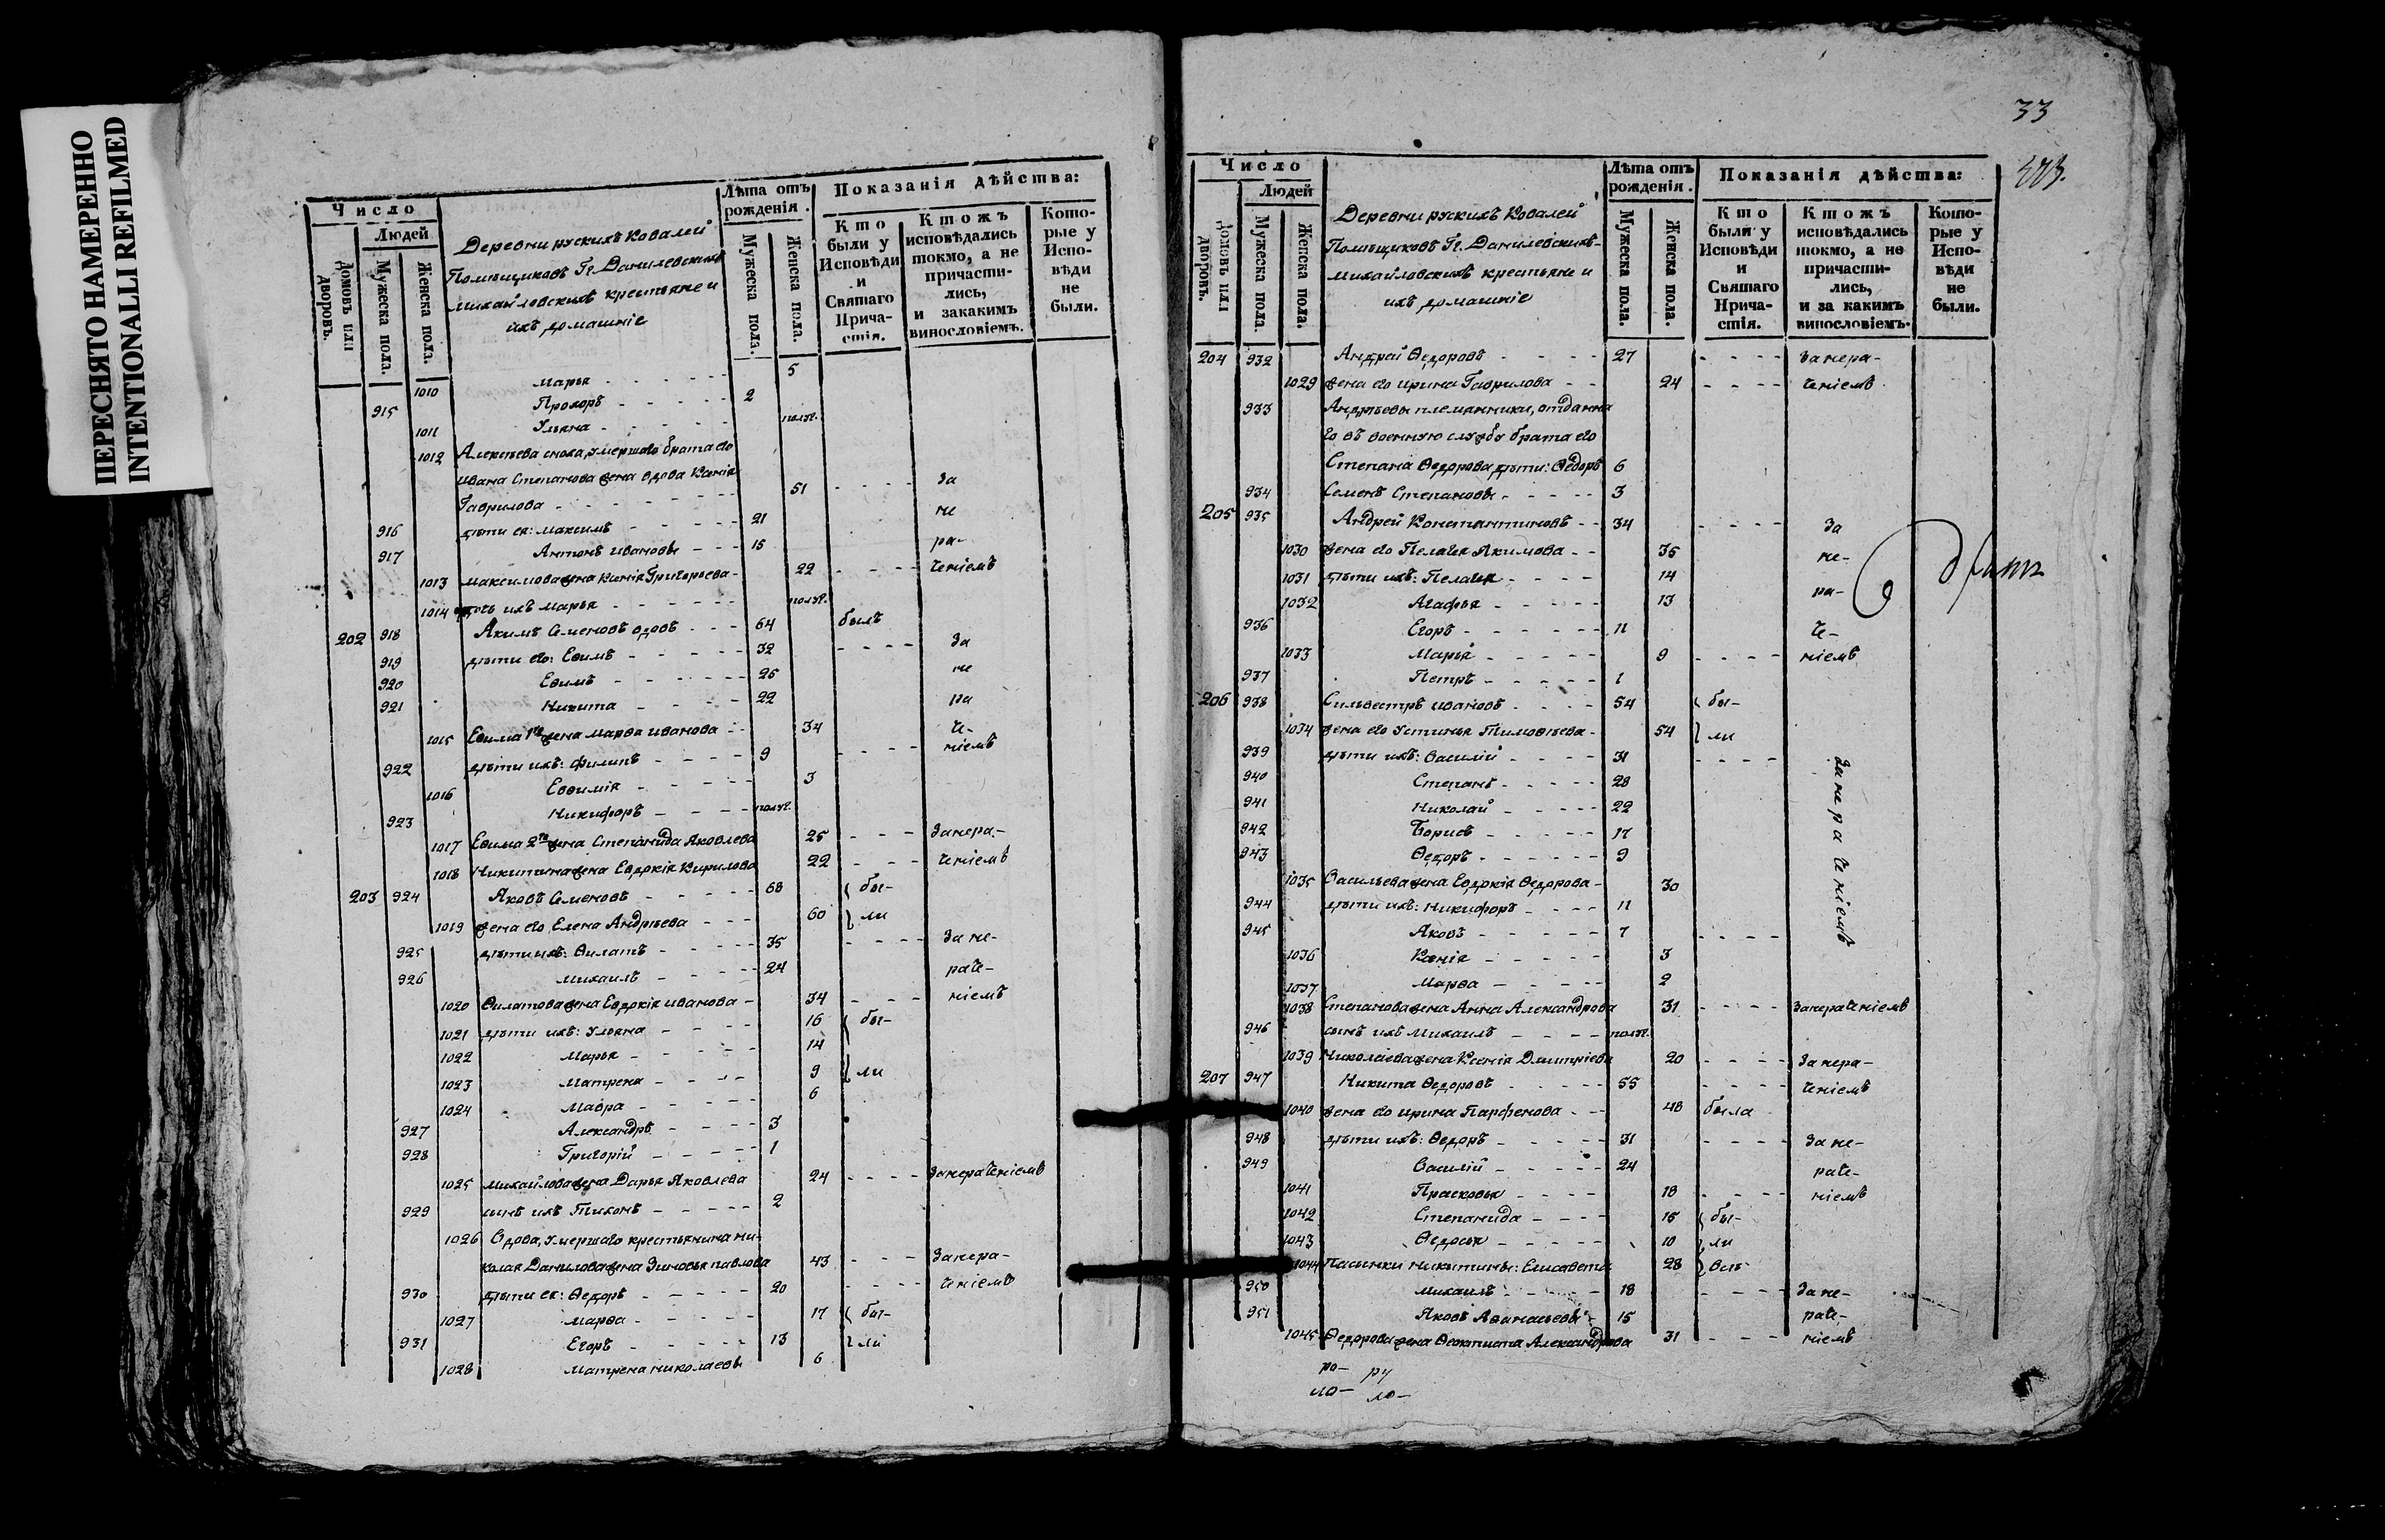 ПЕРЕСНЯТО НАМЕРЕННО
INTENTIONALLI REFILMED
Число
Людей
Домовъ или дворовъ.
Мужеска пола.
Женска пола.
Деревни рускихъ Ковалей
Помѣщиковъ Гг. Данилевскихъ
Михайловскихъ крестьяне и
ихъ домашніе
Лѣта отъ рожденія.
Мужеска пола.
Женска пола.
Показанія дѣйства:
Кто были у Исповѣди и Святаго Прича-стія.
Ктожъ исповѣдались токмо, а не причасти-лись, и закакимъ винословіемъ.
Кото-рые у Испо-вѣди не были.
1010 Марья - - - - - 5
915 Прохоръ - - - - - 2
1011 Ульяна - - - - - полуг.
1012 Алексѣева сноха, умершаго брата его
Ивана Степанова жена вдова Ксенія
Гаврилова - - - - - 51 - - - - За
916 дѣти ея: Максимъ - - - - 21 не
917 Антонъ Ивановы - - - 15 ра-
1013 Максимова жена Ксенія Григорьева - 22 - - - - ченіемъ
1014 дочь ихъ Марья - - - - - - полуг.
202 918 Акимъ Семеновъ вдовъ - - - 64 былъ
919 дѣти его: Евимъ - - - - - 32 - - - - За
920 Евимъ - - - - - - 25 не
921 Никита - - - - 22 ра
1015 Евима 1го жена Марѳа Иванова - - 34 че-
922 дѣти ихъ: Филипъ - - - - 9 - - - - ніемъ
1016 Евѳимія - - - - - 3
923 Никифоръ - - - - полуг.
1017 Евима 2го жена Степанида Яковлева 25 - - - Занера-
1018 Никитина жена Евдокія Кирилова 22 - - - ченіемъ
203 924 Яковъ Семеновъ - - - - - 68 бы-
1019 жена его Елена Андрѣева - - - 60 ли
925 дѣти ихъ: Филатъ - - - - - 35 - - - - За не-
926 Михаилъ - - - - - 24 раче-
1020 Филатова жена Евдокія Иванова - 34 - - - ніемъ
1021 дѣти ихъ: Ульяна - - - - 16 бы-
1022 Марья - - - - - 14
1023 Матрена - - - - 9 ли
1024 Мавра - - - - - 6
927 Александръ - - - - 3
928 Григорій - - - - - 1
1025 Михайлова жена Дарья Яковлева 24 - - - - Занераченіемъ
929 сынъ ихъ Тихонъ - - - - - 2
1026 Вдова, умершаго крестьянина Ни-
колая Данилова жена Зиновья Павлова 43 - - - Занера-
930 дѣти ея: Ѳедоръ - - - - - 20 - - - - ченіемъ
1027 Марѳа - - - - - 17 бы-
931 Егоръ - - - - - 13 ли
1028 Матрена Николаевы 6
33
Число
Людей
Домовъ или дворовъ.
Мужеска пола.
Женска пола.
Деревни рускихъ Ковалей
Помѣщиковъ Гг. Данилевскихъ-
Михайловскихъ крестьяне и
ихъ домашніе
Лѣта отъ рожденія.
Мужеска пола.
Женска пола.
Показанія дѣйства:
Кто были у Исповѣди и Святаго Прича-стія.
Ктожъ исповѣдались токмо, а не причасти-лись, и за какимъ винословіемъ.
Кото-рые у Испо-вѣди не были.
204 932 Андрей Ѳедоровъ - - - - 27 - - - - Занера-
1029 жена его Ирина Гаврилова - - 24 - - - - ченіемъ
933 Андрѣевы племянники, отданна
го въ военную службу брата его
Степана Ѳедорова дѣти: Ѳедоръ 6
934 Семенъ Степановы - - - - - 3
205 935 Андрей Константиновъ - - 34 - - - - За
1030 жена его Пелагея Якимова - - 35 не-
1031 дѣти ихъ: Пелагея - - - - 14
1032 Агафья - - - - - 13 ра-
936 Егоръ - - - - - - 11 че-
1033 Марья - - - - - 9 - - - - ніемъ
937 Петръ - - - - - 1
206 938 Сильвестръ Ивановъ - - - - 54 бы-
1034 жена его Устинья Тимоѳѣева - 54 ли
939 дѣти ихъ: Василій - - - - 31 - - - -
940 Степанъ - - - - - 28
941 Николай - - - - - 22
942 Борисъ - - - - - 17
943 Ѳедоръ - - - - - - 9
Занераченіемъ
1035 Васильева жена Евдокія Ѳедорова - 30
944 дѣти ихъ: Никифоръ - - - - 11
945 Яковъ - - - - - 7 - - - -
1036 Ксенія - - - - - 3
1037 Марѳа - - - - - 2
1038 Степанова жена Анна Александрова 31 - - - - Занераченіемъ
946 сынъ ихъ Михаилъ - - - - - полуг.
1039 Николаева жена Ксенія Дмитріева 20 - - - - Занера-
207 947 Никита Ѳедоровъ - - - - - 55 - - - - ченіемъ
1040 жена его Ирина Парфенова - - - 48 была
948 дѣти ихъ: Ѳедоръ - - - - - 31 - - - - За не-
949 Василій - - - - - 24 раче-
1041 Прасковья - - - - 18 - - - - ніемъ
1042 Степанида - - - - 15 бы-
1043 Ѳедосья - - - - - 10 ли
1044 Пасынки Никитины: Елисавета 28 всѣ
950 Михаилъ - - - - - 18 - - - - За не-
951 Яковъ Аѳанасьевы - 15 раче-
1045 Ѳедорова жена Ѳеоктиста Александрова 31 - - - ніемъ
ро- ру
ло- ло-